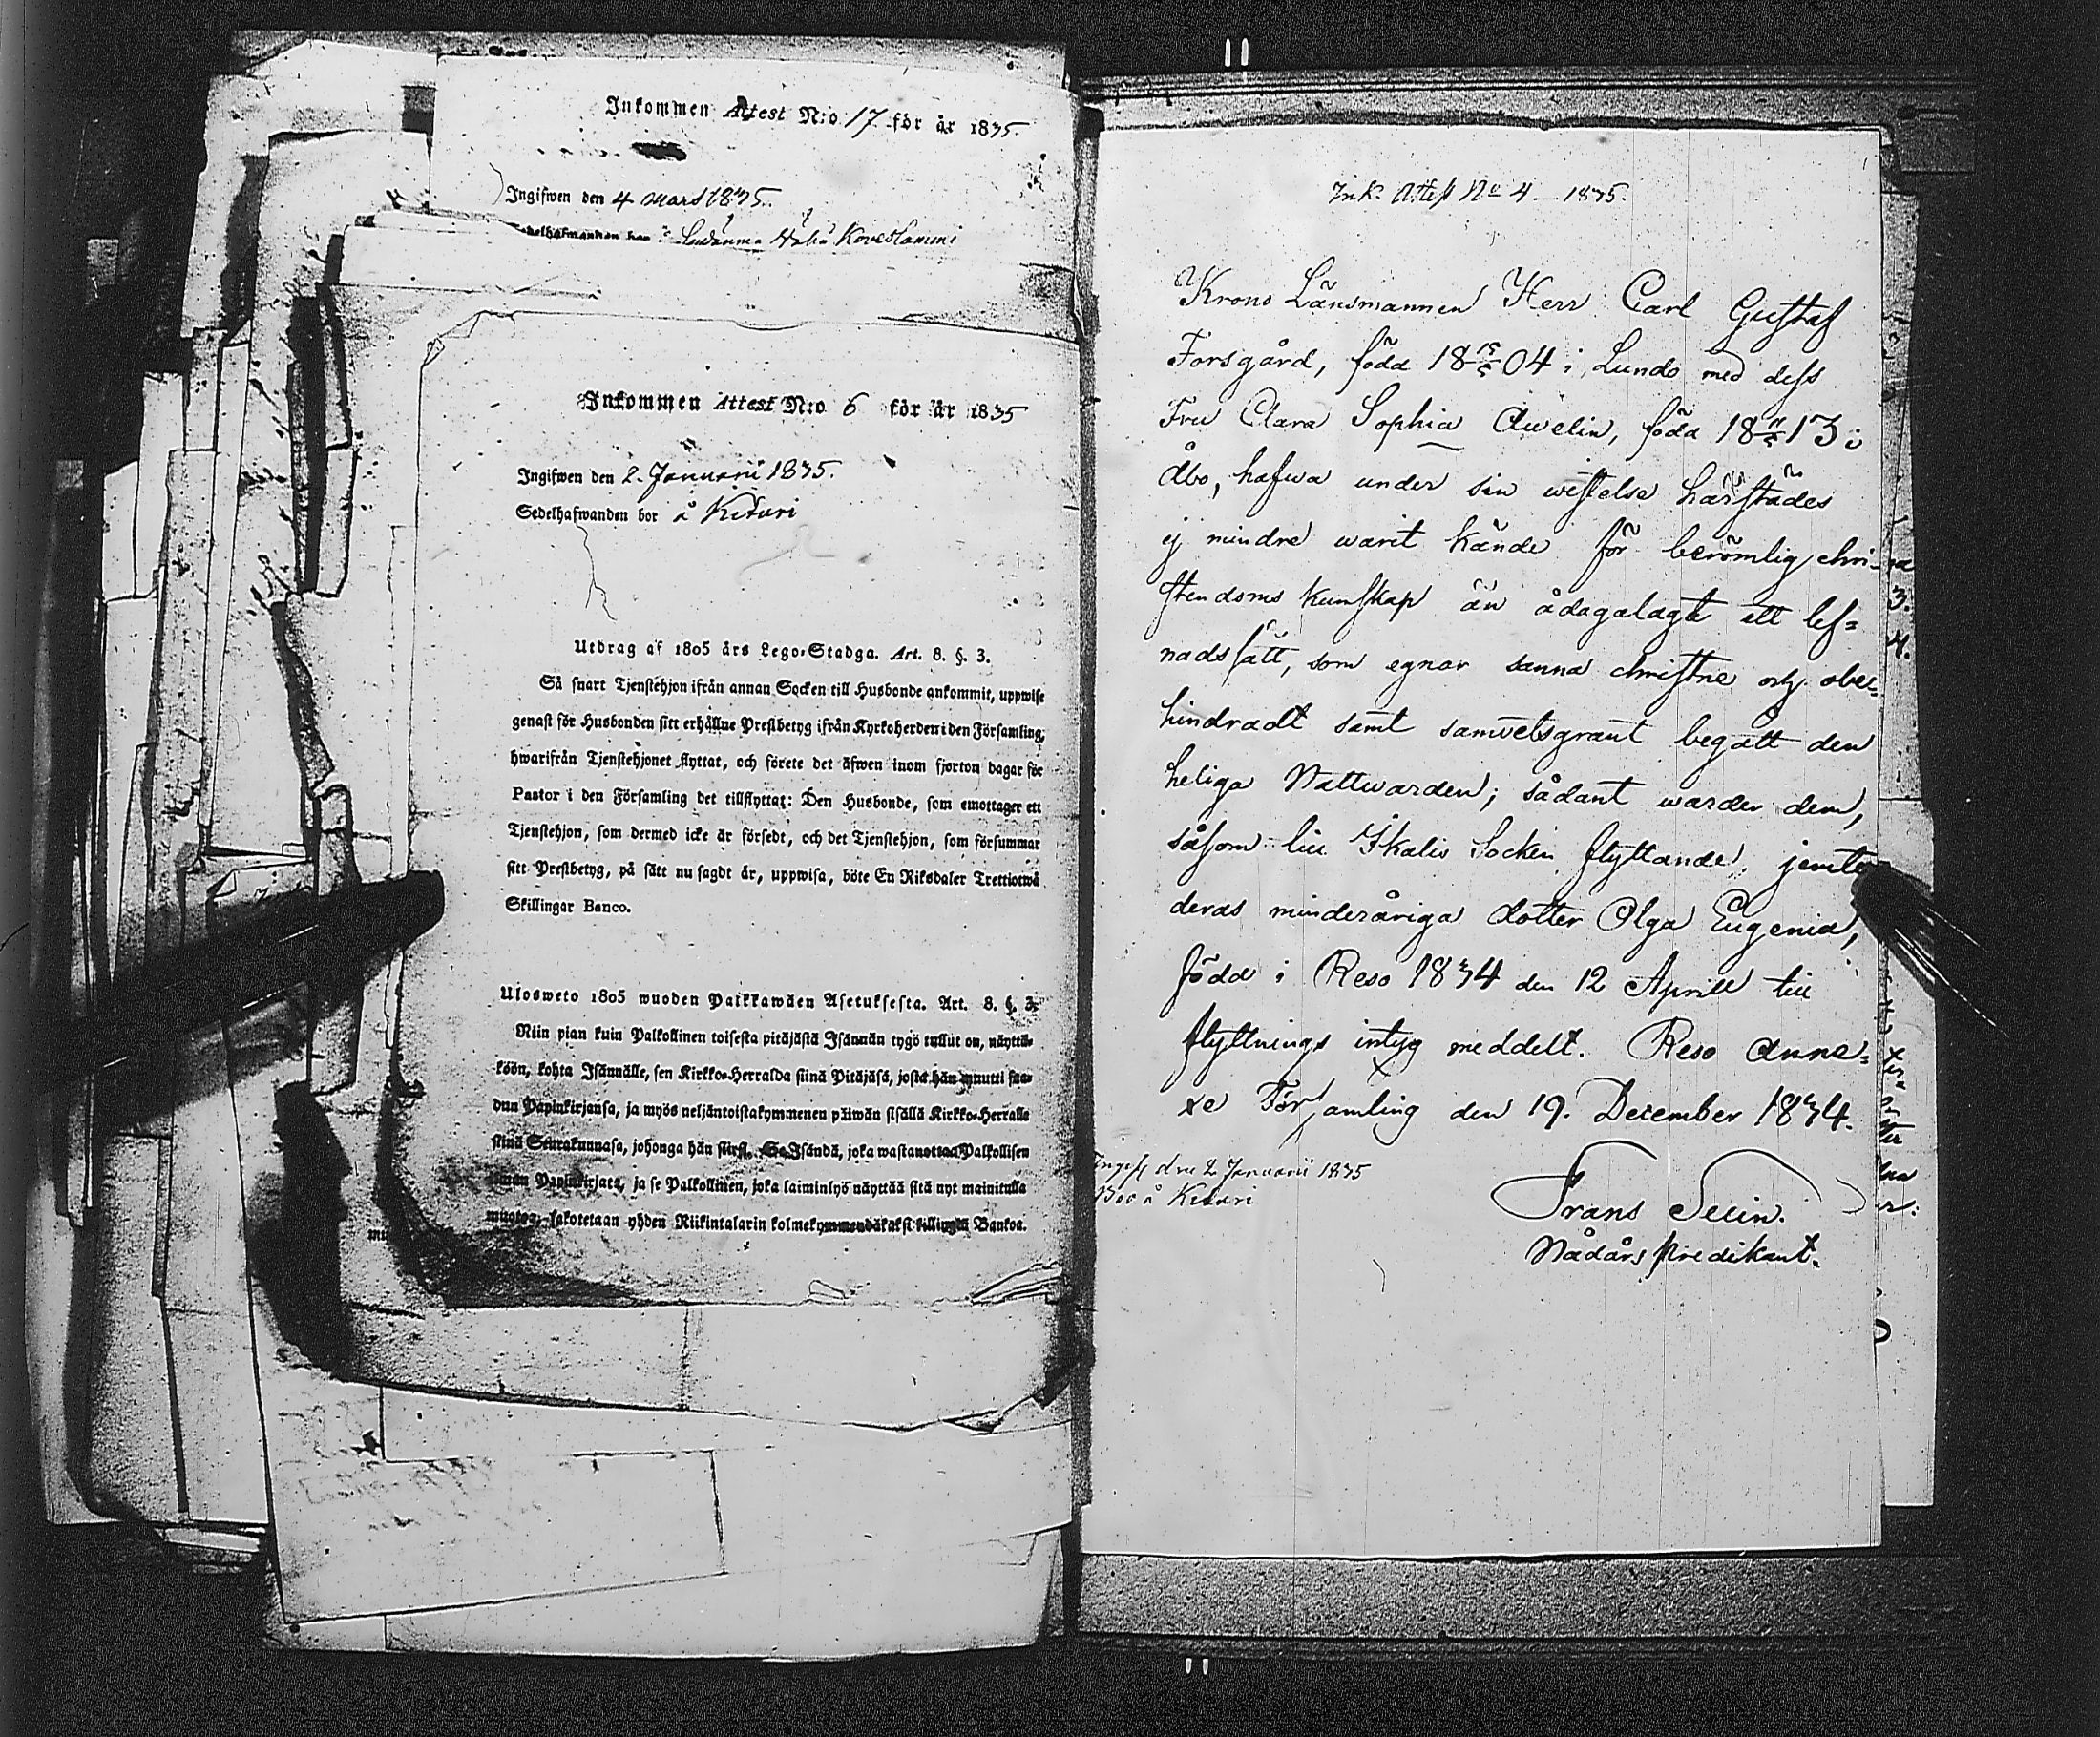 Inkommen Attest N:o 17 för år 1835.
Ingifwen den 4 Mars 1835.
Inkommen Attest N:o 6 för år 1835
Ingifwen den 2. Januari 1835.
Sedelhafwanden bor å Kituri
Utdrag af 1805 års Lego-Stadga. Art. 8. §. 3.
Så snart Tjenstehjon ifrån annan Socken till Husbonde ankommit, uppwise
genast för Husbonden sitt erhållne Prestbetyg ifrån Kyrkoherden i den Församling,
hwarifrån Tjenstehjonet flyttat, och förete det äfwen inom fjorton dagar för
Pastor i den Församling det tillflyttat: Den Husbonde, som emottager ett
Tjenstehjon, som dermed icke är försedt, och det Tjenstehjon, som försummar
sitt Prestbetyg, på sätt nu sagdt är, uppwisa, böte En Riksdaler Trettiotwå
Skillingar Banco.
Ulosweto 1805 wuoden Palkkawäen Asetuksesta. Art. 8. §. 3.
Niin pian kuin Palkollinen toisesta pitäjästä Isännän tygö tullut on, näyttä-
köön, kohta Isännälle, sen Kirkko-Herralda siinä Pitäjäsä, josta hän muutti saa-
dun Papinkirjansa, ja myös neljäntoistakymmenen päiwän sisällä Kirkko-Herralle
siinä Seurakunnasa, johonga hän siirsi. Se Isändä, joka wastanottaa Palkollisen
ilman Papinkirjata, ja se Palkollinen, joka laiminlyö näyttää sitä nyt mainitulla
muotoa, sakotetaan yhden Riikintalarin kolmekymmendäkaksi killingiä Bankoa.
Ink. Attest No 4 1835.
Krono Länsmannen Herr Carl Gustaf
Forsgård, född 18 15/5 04 i Lundo med dess
Fru Clara Sophia Awelin, född 18 11/5 13 i
Åbo, hafwa under sin wistelse härstädes
ej mindre warit kände för berömlig chri-
stendoms kunskap än ådagalagt ett lef=
nadssätt, som egnar sanna christne och obe=
hindradt samt samvetsgrant begått den
heliga Nattwarden; sådant warder dem,
såsom till Ikalis Socken flyttande, jemte
deras minderåriga dotter Olga Eugenia,
född i Reso 1834 den 12 Aprill till
flyttnings intyg meddelt. Reso Anne=
xe Församling den 19. December 1834.
Frans
Nådårs Predikant.
Ingifs den 2 Januarii 1835
Bor å Kituri